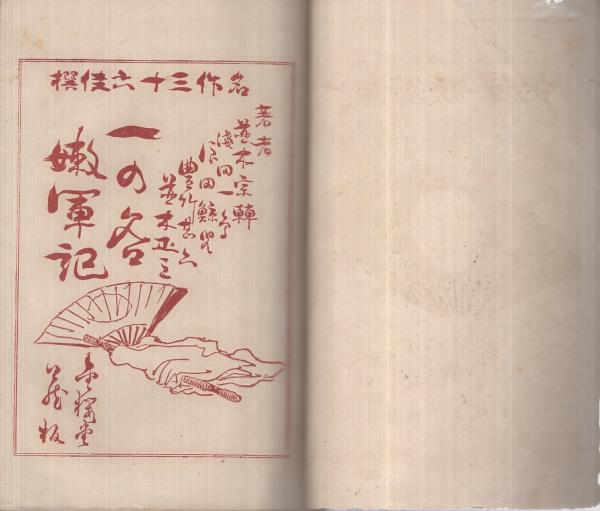 名作三十六佳撰
著者
並木宗輔
浅田一鳥
浪岡鯨児
豊竹甚六
並木正三
一の谷
嫩軍記
金桜堂
蔵板